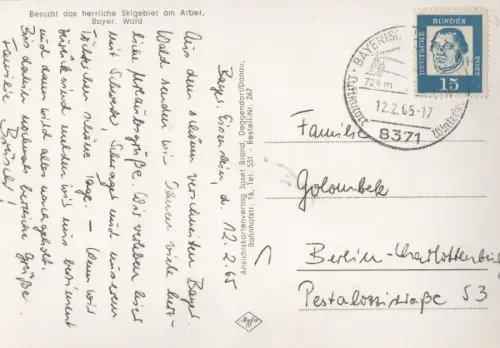 Besucht das herrliche Skigebiet am Arber,
Bayer. Wald
Bayr. Eisenstein, d. 12.2.65
Aus dem schön verschneiten Bayr.
Wald senden wir Ihnen viele herz-
liche Urlaubsgrüße. Wir verleben hier
mit Schwester, Schwager und unserem
Töchterchen schöne Tage. – Wenn wir
zurück sind melden wir uns bestimmt
und dann wird alles nachgeholt.
Bis dahin nochmals herzliche Grüße
Familie
Ansichtskartenverlag Josef Brandl, Deggendorf/Donau,
Bahnhofstr. 16, Tel. 551 - Bestell-Nr. 247
BAYERISCH
724 m
Luftkurort
12.2.65-17
8371
DEUTSCHE
BUNDES
POST
15
Familie
Golombek
Berlin-Charlottenburg
Pestalozzistraße 53